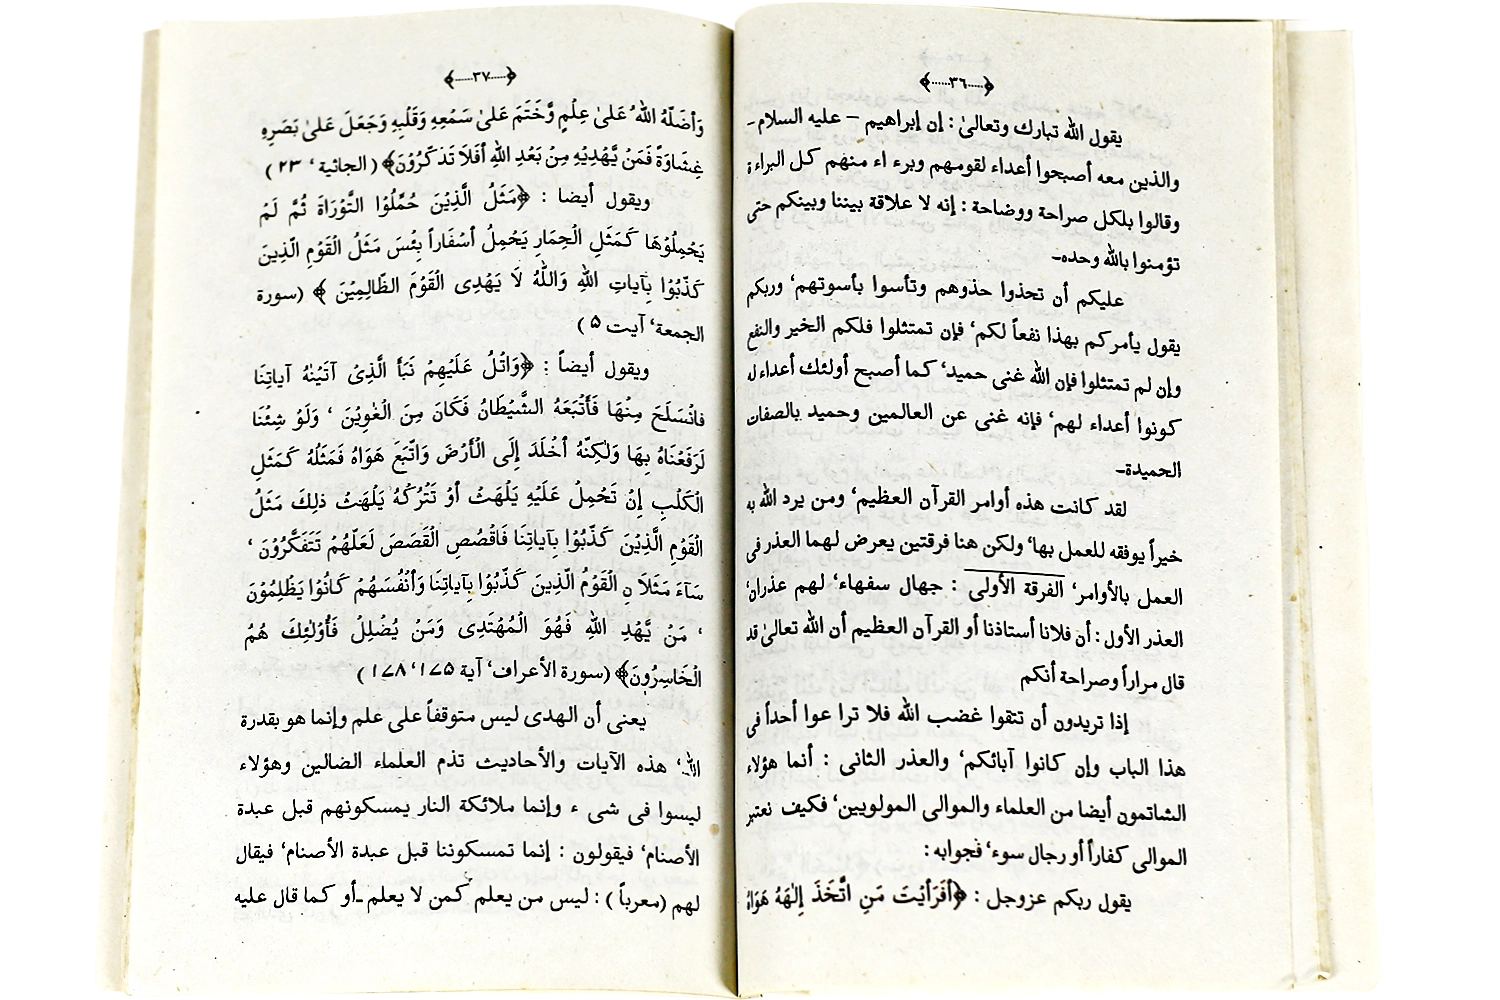 ﴿......٣٦......﴾
يقول الله تبارك وتعالىٰ : إن إبراهيم – عليه السلام-
والذين معه أصبحوا أعداء لقومهم وبرء اء منهم كل البراءة
وقالوا بلكل صراحة ووضاحة : إنه لا علاقة بيننا وبينكم حتى
تؤمنوا بالله وحده-
عليكم أن تحذوا حذوهم وتأسوا بأسوتهم‘ وربكم
يقول يأمركم بهذا نفعاً لكم‘ فإن تمتثلوا فلكم الخير والنفع
وإن لم تمتثلوا فإن الله غنى حميد‘ كما أصبح أولئك أعداء له
كونوا أعداء لهم‘ فإنه غنى عن العالمين وحميد بالصفات
الحميدة-
لقد كانت هذه أوامر القرآن العظيم‘ ومن يرد الله به
خيراً يوفقه للعمل بها‘ ولكن هنا فرقتين يعرض لهما العذر فى
العمل بالأوامر‘ الفرقة الأولى : جهال سفهاء‘ لهم عذران‘
العذر الأول : أن فلانا أستاذنا أو القرآن العظيم أن الله تعالىٰ قد
قال مراراً وصراحة أنكم
إذا تريدون أن تتقوا غضب الله فلا ترا عوا أحداً فى
هذا الباب وإن كانوا آبائكم‘ والعذر الثانى : أنما هؤلاء
الشاتمون أيضا من العلماء والموالى المولويين‘ فكيف نعتبر
الموالى كفاراً أو رجال سوء‘ فجوابه :
يقول ربكم عزوجل : ﴿أَفَرَأَيْتَ مَنِ اتَّخَذَ إِلٰهَهُ هَوَاهُ
﴿......٣٧......﴾
وَأَضَلَّهُ اللهُ عَلىٰ عِلْمٍ وَّخَتَمَ عَلىٰ سَمْعِهِ وَقَلْبِهِ وَجَعَلَ عَلىٰ بَصَرِهِ
غِشَاوَةً فَمَنْ يَّهْدِيْهِ مِنْ بَعْدِ اللهِ أَفَلَا تَذَكَّرُوْنَ﴾ ( الجاثية ‘ ٢٣ )
ويقول أيضا : ﴿مَثَلُ الَّذِيْنَ حُمِّلُوْا التَّوْرَاةَ ثُمَّ لَمْ
يَحْمِلُوْهَا كَمَثَلِ الْحِمَارِ يَحْمِلُ أَسْفَاراً بِئْسَ مَثَلُ الْقَوْمِ الَّذِينَ
كَذَّبُوْا بِآيَاتِ اللهِ وَاللّٰهُ لَا يَهْدِى الْقَوْمَ الظَّالِمِيْنَ ﴾ (سورة
الجمعة‘ آيت ۵ )
ويقول أيضاً : ﴿وَاتْلُ عَلَيْهِمْ نَبَأَ الَّذِىْ آتَيْنٰهُ آياتِنَا
فَانْسَلَخَ مِنْهَا فَأَتْبَعَهُ الشَّيْطَانُ فَكَانَ مِنَ الْغٰوِيْنَ ‘ وَلَوْ شِئْنَا
لَرَفَعْنَاهُ بِهَا وَلٰكِنَّهُ أَخْلَدَ إِلَى الْأَرْضِ وَاتَّبَعَ هَوَاهُ فَمَثَلُهُ كَمَثَلِ
الْكَلْبِ إِنْ تَحْمِلْ عَلَيْهِ يَلْهَثْ أَوْ تَتْرُكْهُ يَلْهَثْ ذلِكَ مَثَلُ
الْقَوْمِ الَّذِيْنَ كَذَّبُوْا بِآياتِنَا فَاقْصُصِ الْقَصَصَ لَعَلَّهُمْ تَتَفَكَّرُوْنَ ‘
سَآءَ مَثَلَا نِ الْقَوْمُ الَّذِينَ كَذَّبُوْا بِآياتِنَا وَأَنْفُسَهُمْ كَانُوْا يَظْلِمُوْنَ
‘ مَنْ يَّهْدِ اللهِ فَهُوَ الْمُهْتَدِى وَمَنْ يُضْلِلْ فَأُوْلٰئِكَ هُمُ
الْخَاسِرُونَ﴾ (سورة الأعراف‘ آية ١٧۵‘ ١٧٨ )
يعنى أن الهدى ليس متوقفاً على علم وإنما هو بقدرة
الله‘ هذه الآيات والأحاديث تذم العلماء الضالين وهؤلاء
ليسوا فى شى ء وإنما ملائكة النار يمسكونهم قبل عبدة
الأصنام‘ فيقولون : إنما تمسكوننا قبل عبدة الأصنام‘ فيقال
لهم (معرباً ) : ليس من يعلم كمن لا يعلم ـأو كما قال عليه